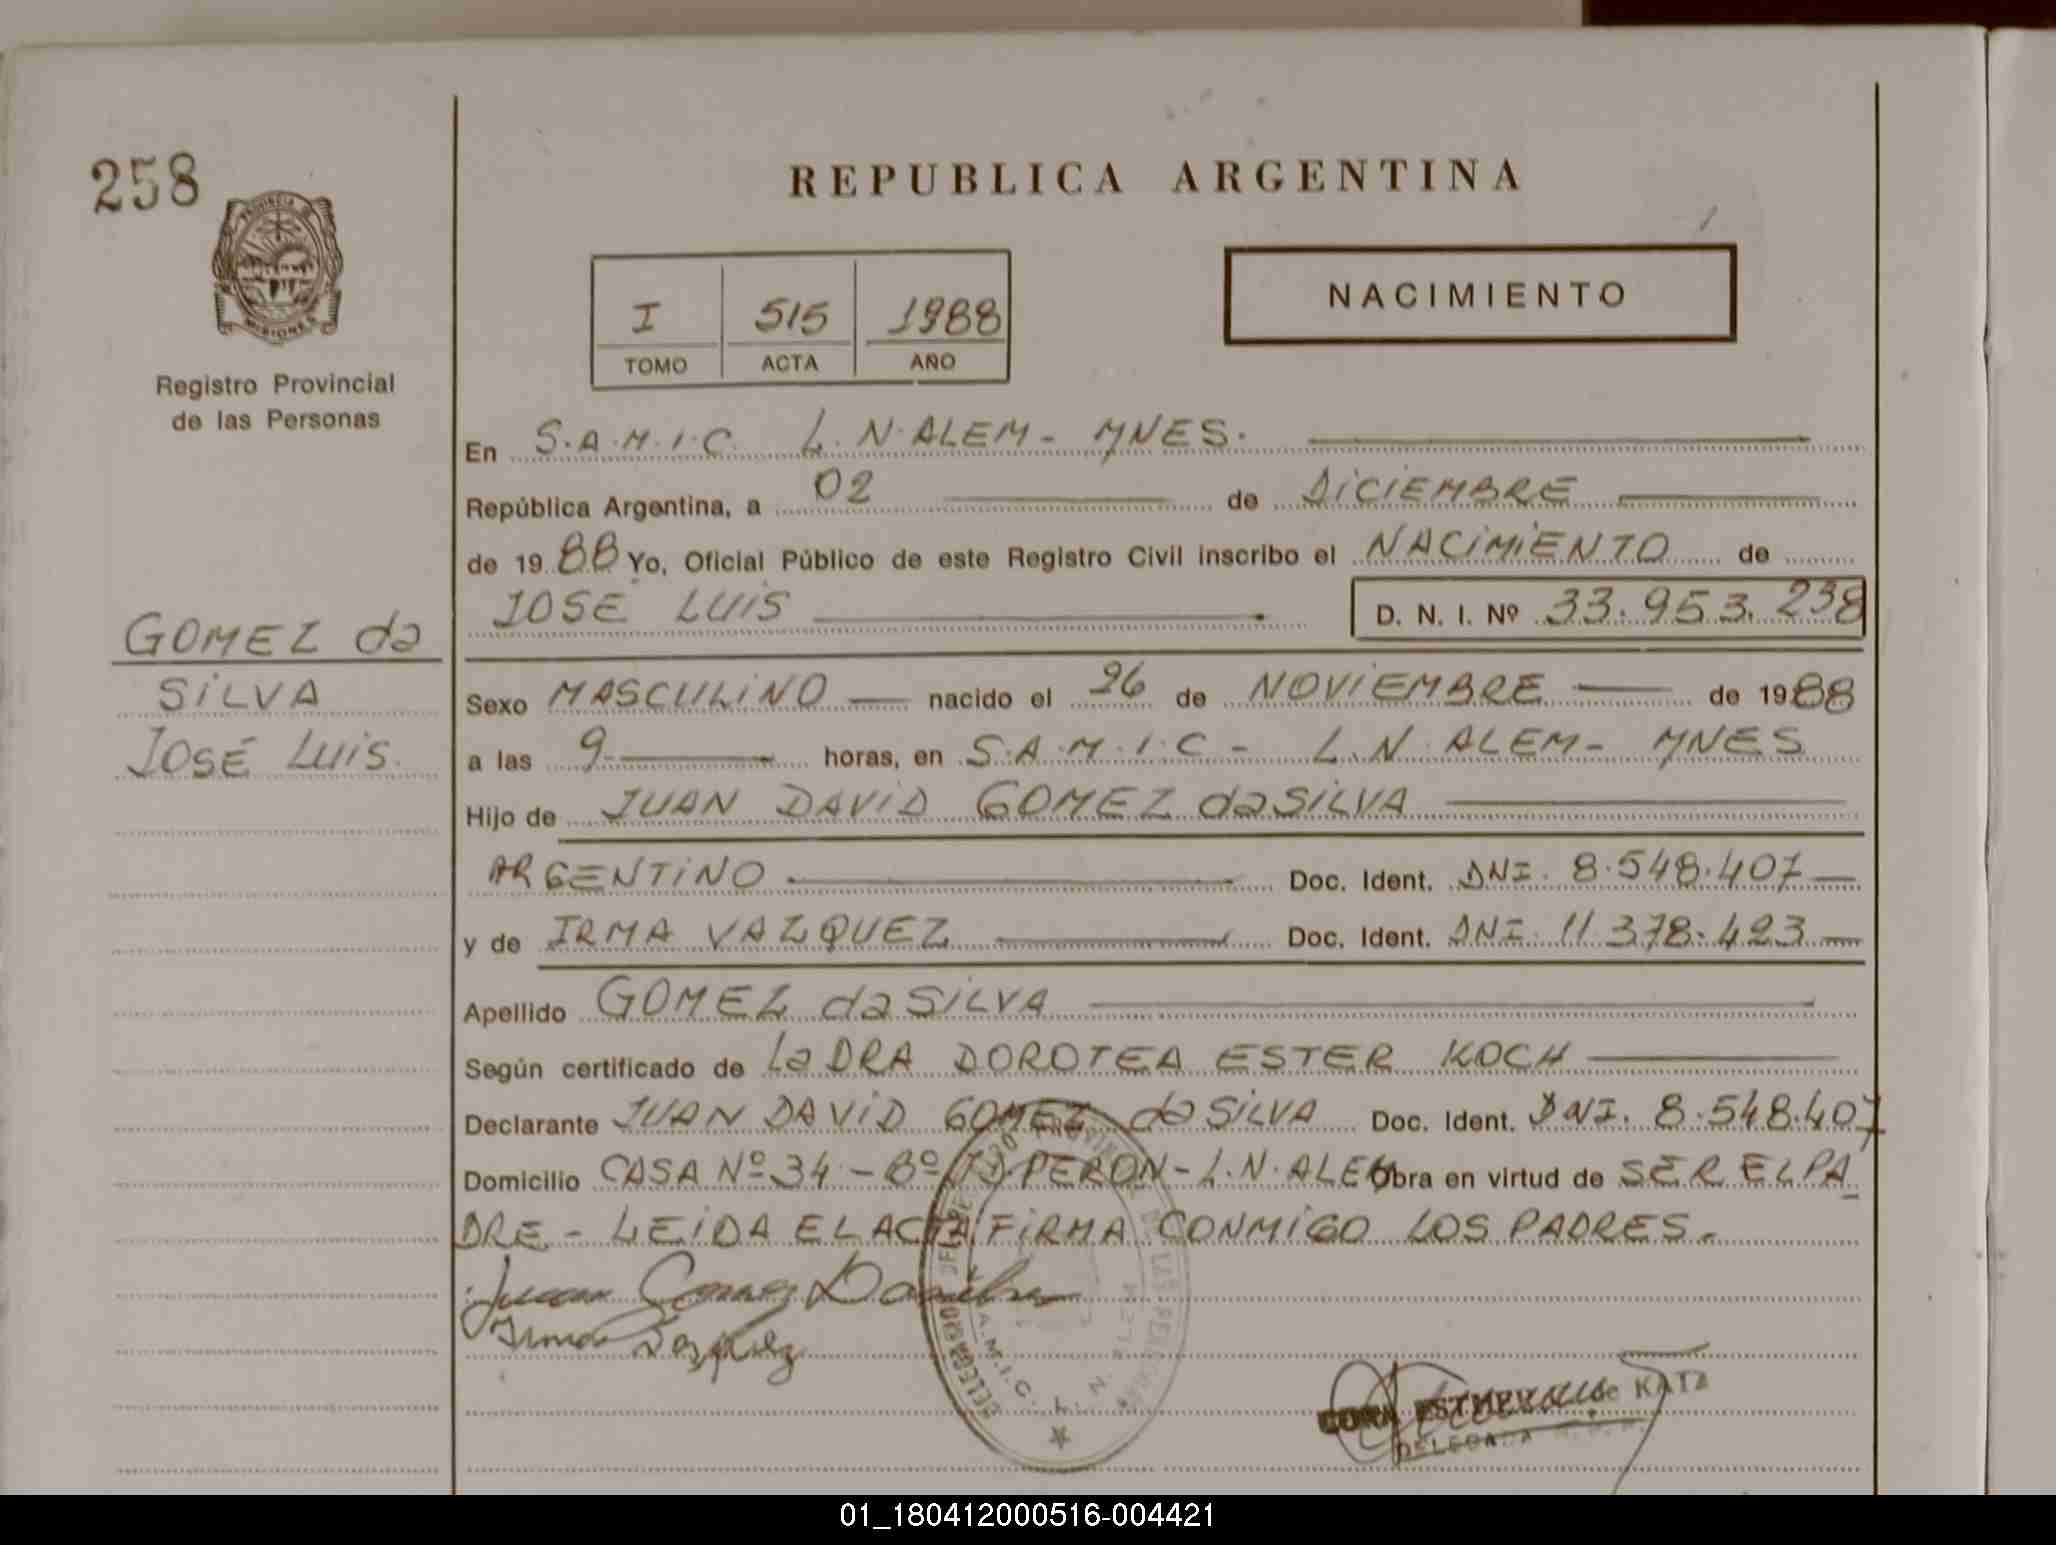 258
REPUBLICA ARGENTINA
PROVINCIA DE
MISIONES
Registro Provincial
de las Personas
I 515 1988
TOMO ACTA AÑO
NACIMIENTO
En S.A.M.I.C. L.N.ALEM - MNES.
República Argentina, a 02 de DICIEMBRE
de 19 88 Yo, Oficial Público de este Registro Civil inscribo el NACIMIENTO de
JOSE LUIS D. N. I. Nº 33.953.238
GOMEZ da
SILVA
JOSÉ LUIS.
Sexo MASCULINO nacido el 26 de NOVIEMBRE de 1988
a las 9 horas, en S.A.M.I.C - L.N.ALEM - MNES
Hijo de JUAN DAVID GOMEZ da SILVA
ARGENTINO Doc. Ident. DNI. 8.548.407
y de IRMA VAZQUEZ Doc. Ident. DNI. 11.378.423
Apellido GOMEZ da SILVA
Según certificado de La DRA DOROTEA ESTER KOCH
Declarante JUAN DAVID GOMEZ da SILVA Doc. Ident. DNI. 8.548.407
Domicilio CASA Nº 34 - Bº JD PERON - L.N.ALEM Obra en virtud de SER EL PA
DRE - LEIDA EL ACTA FIRMA CONMIGO LOS PADRES.
Juan Gomez Da silva
Irma Vazquez
S.A.M.I.C. L. N. ALEM
CORA ESTHER de KATZ
DELEGADA
01_180412000516-004421